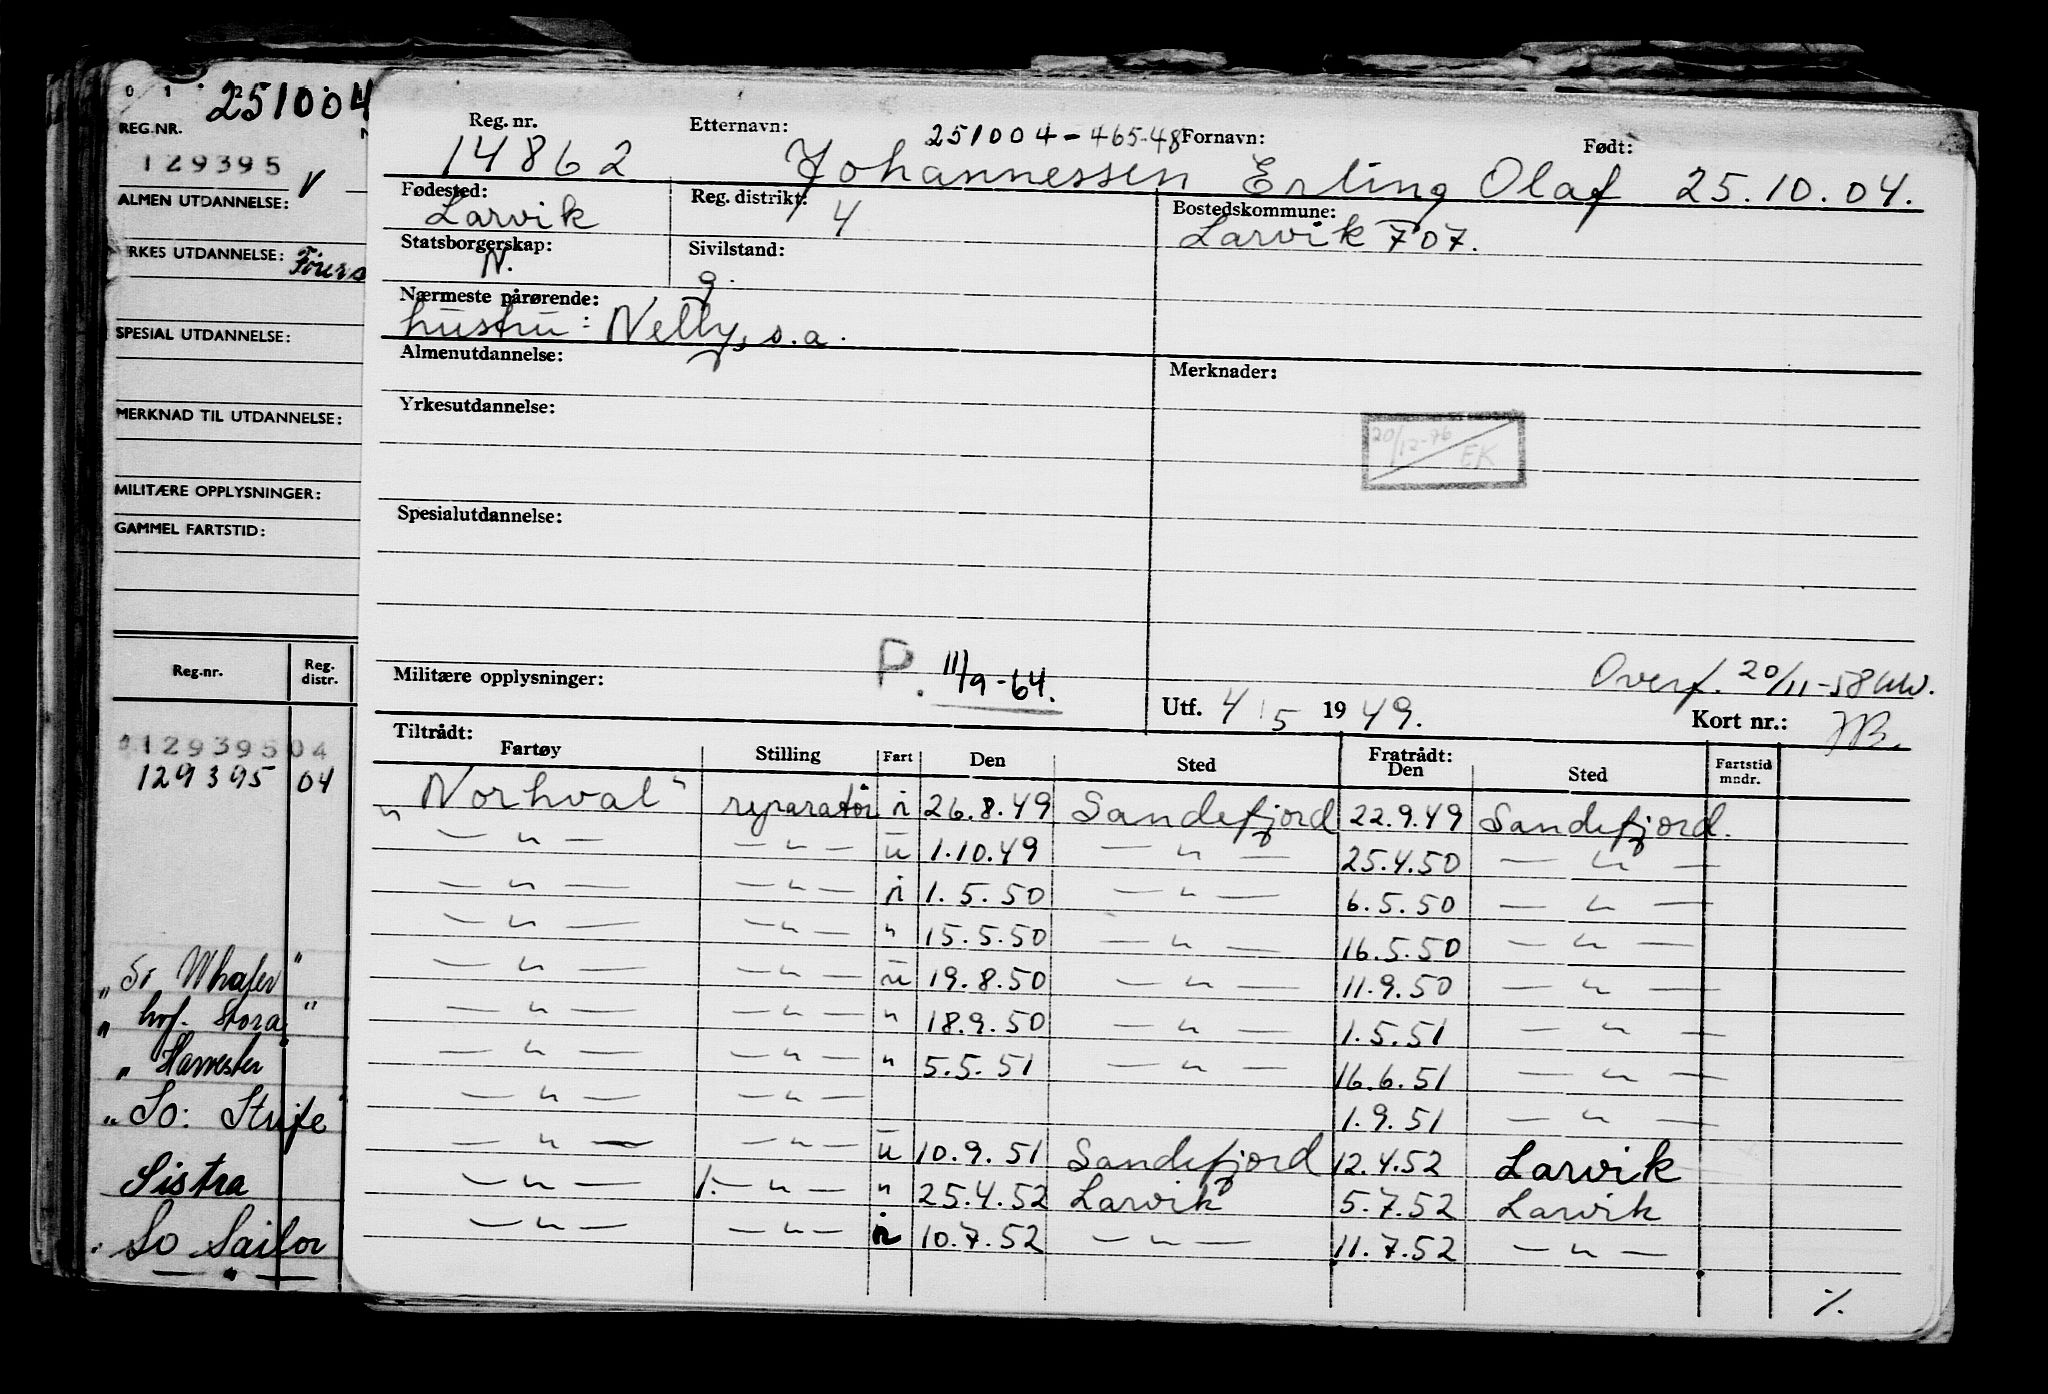 0 1 251004
REG.NR.
129395 V
ALMEN UTDANNELSE:
RKES UTDANNELSE:
SPESIAL UTDANNELSE:
MERKNAD TIL UTDANNELSE:
MILITÆRE OPPLYSNINGER:
GAMMEL FARTSTID:
Reg.nr. Reg. distr.
129395 04
129395 04
" So Whaler "
" hof. Stora "
" Harvester
" So: Strife "
Sistra
So Sailor
— " —
Reg. nr. Etternavn: 251004-465-48 Fornavn: Født:
14862 Johannessen Erling Olaf 25.10.04.
Fødested: Reg. distrikt: Bostedskommune:
Larvik 4 Larvik 707.
Statsborgerskap: Sivilstand:
N. g.
Nærmeste pårørende:
hustru: Nelly, s.a.
Almenutdannelse: Merknader:
Yrkesutdannelse:
20/12-76 EK
Spesialutdannelse:
Militære opplysninger: P. 11/9-64.
Overf. 20/11-58 UW.
Utf. 4/5 1949. Kort nr.: JB.
Tiltrådt: Fratrådt:
Fartøy Stilling Fart Den Sted Den Sted Fartstid mndr.
"Norhval" reparatør i 26.8.49 Sandefjord 22.9.49 Sandefjord.
— " — — " — u 1.10.49 — " — 25.4.50 — " —
— " — — " — i 1.5.50 — " — 6.5.50 — " —
— " — — " — " 15.5.50 — " — 16.5.50 — " —
— " — — " — u 19.8.50 — " — 11.9.50 — " —
— " — — " — " 18.9.50 — " — 1.5.51 — " —
— " — — " — " 5.5.51 — " — 16.6.51 — " —
— " — — " — 1.9.51 — " —
— " — — " — u 10.9.51 Sandefjord 12.4.52 Larvik
— " — 1. — " — " 25.4.52 Larvik 5.7.52 Larvik
— " — — " — i 10.7.52 — " — 11.7.52 — " —
%